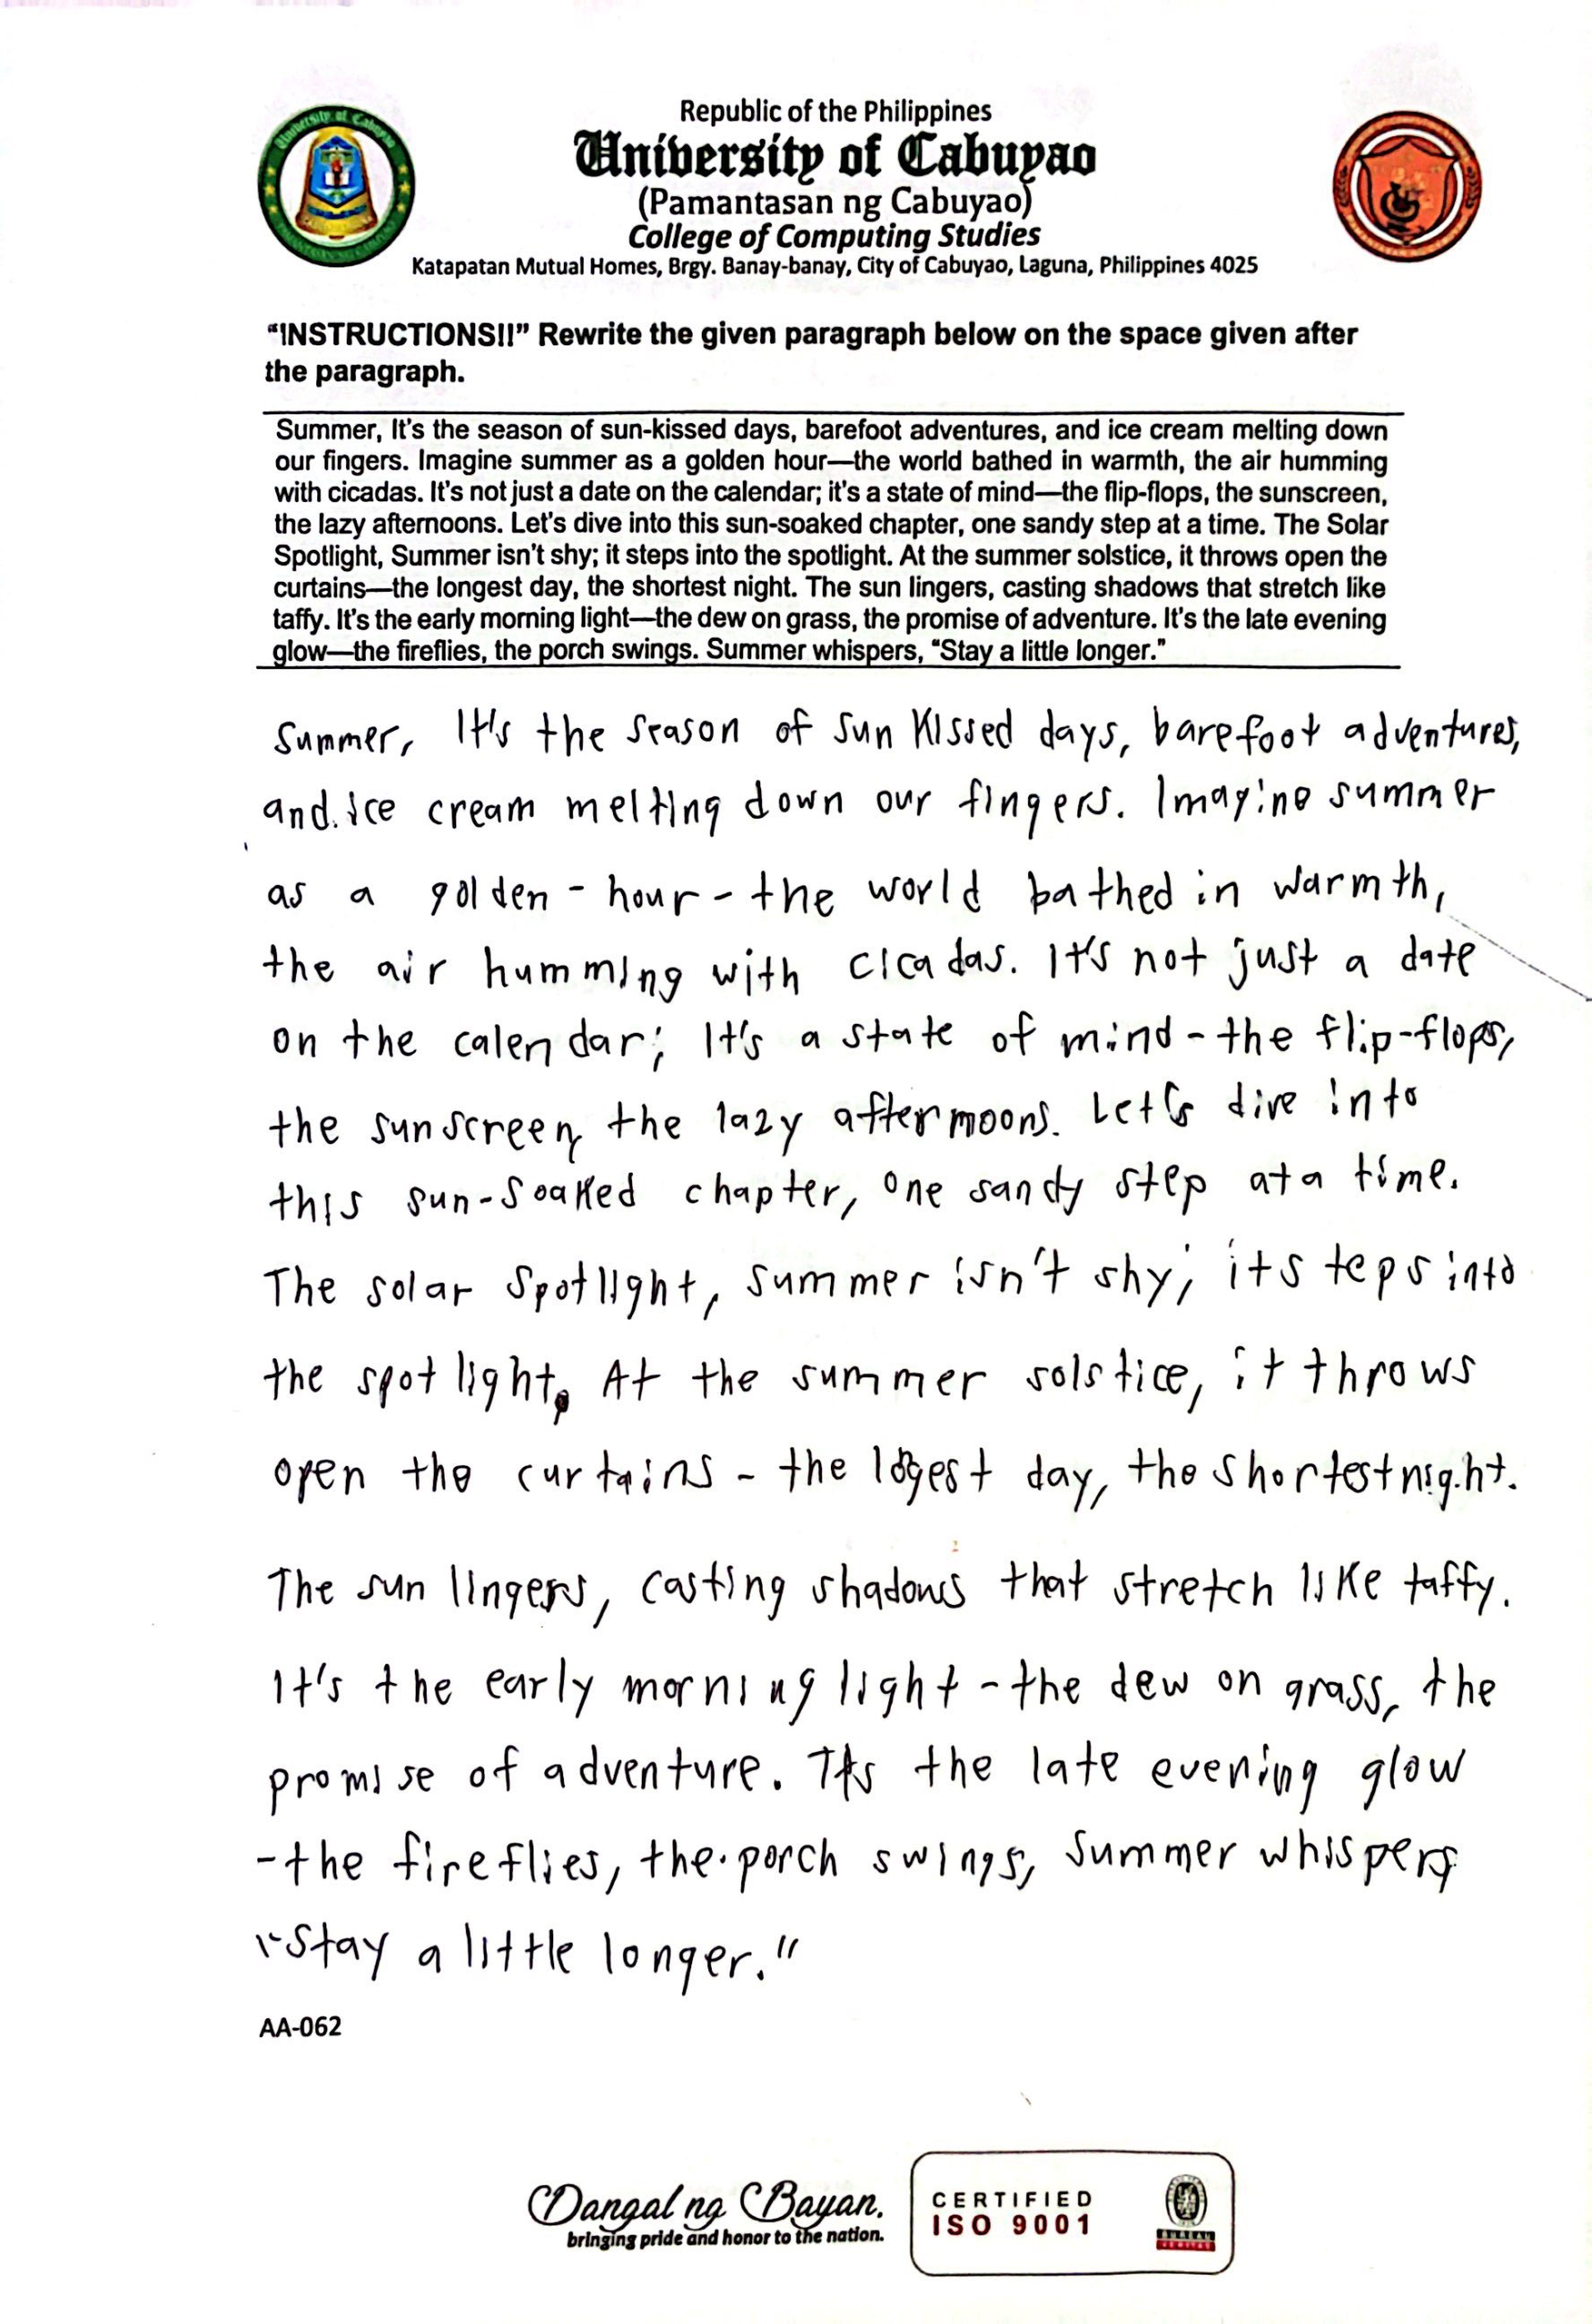 Republic of the Philippines
University of Cabuyao
(Pamantasan ng Cabuyao)
College of Computing Studies
Katapatan Mutual Homes, Brgy. Banay-banay, City of Cabuyao, Laguna, Philippines 4025
“INSTRUCTIONS!!” Rewrite the given paragraph below on the space given after
the paragraph.
Summer, It’s the season of sun-kissed days, barefoot adventures, and ice cream melting down
our fingers. Imagine summer as a golden hour—the world bathed in warmth, the air humming
with cicadas. It’s not just a date on the calendar; it’s a state of mind—the flip-flops, the sunscreen,
the lazy afternoons. Let’s dive into this sun-soaked chapter, one sandy step at a time. The Solar
Spotlight, Summer isn’t shy; it steps into the spotlight. At the summer solstice, it throws open the
curtains—the longest day, the shortest night. The sun lingers, casting shadows that stretch like
taffy. It’s the early morning light—the dew on grass, the promise of adventure. It’s the late evening
glow—the fireflies, the porch swings. Summer whispers, “Stay a little longer.”
Summer, It's the season of sun kissed days, barefoot adventures,
and ice cream melting down our fingers. Imagine summer
as a golden - hour - the world bathed in warmth,
the air humming with cicadas. It's not just a date
on the calendar; It's a state of mind - the flip-flops,
the sunscreen, the lazy aftermoons. Let's dive into
this sun-soaked chapter, one sandy step at a time.
The solar spotlight, summer isn't shy; it steps into
the spotlight. At the summer solstice, it throws
open the curtains - the longest day, the shortest night.
The sun lingers, casting shadows that stretch like taffy.
It's the early morning light - the dew on grass, the
promise of adventure. It's the late evening glow
- the fireflies, the porch swings, summer whispers
"Stay a little longer."
AA-062
Dangal ng Bayan.
bringing pride and honor to the nation.
CERTIFIED
ISO 9001
BUREAU
VERITAS